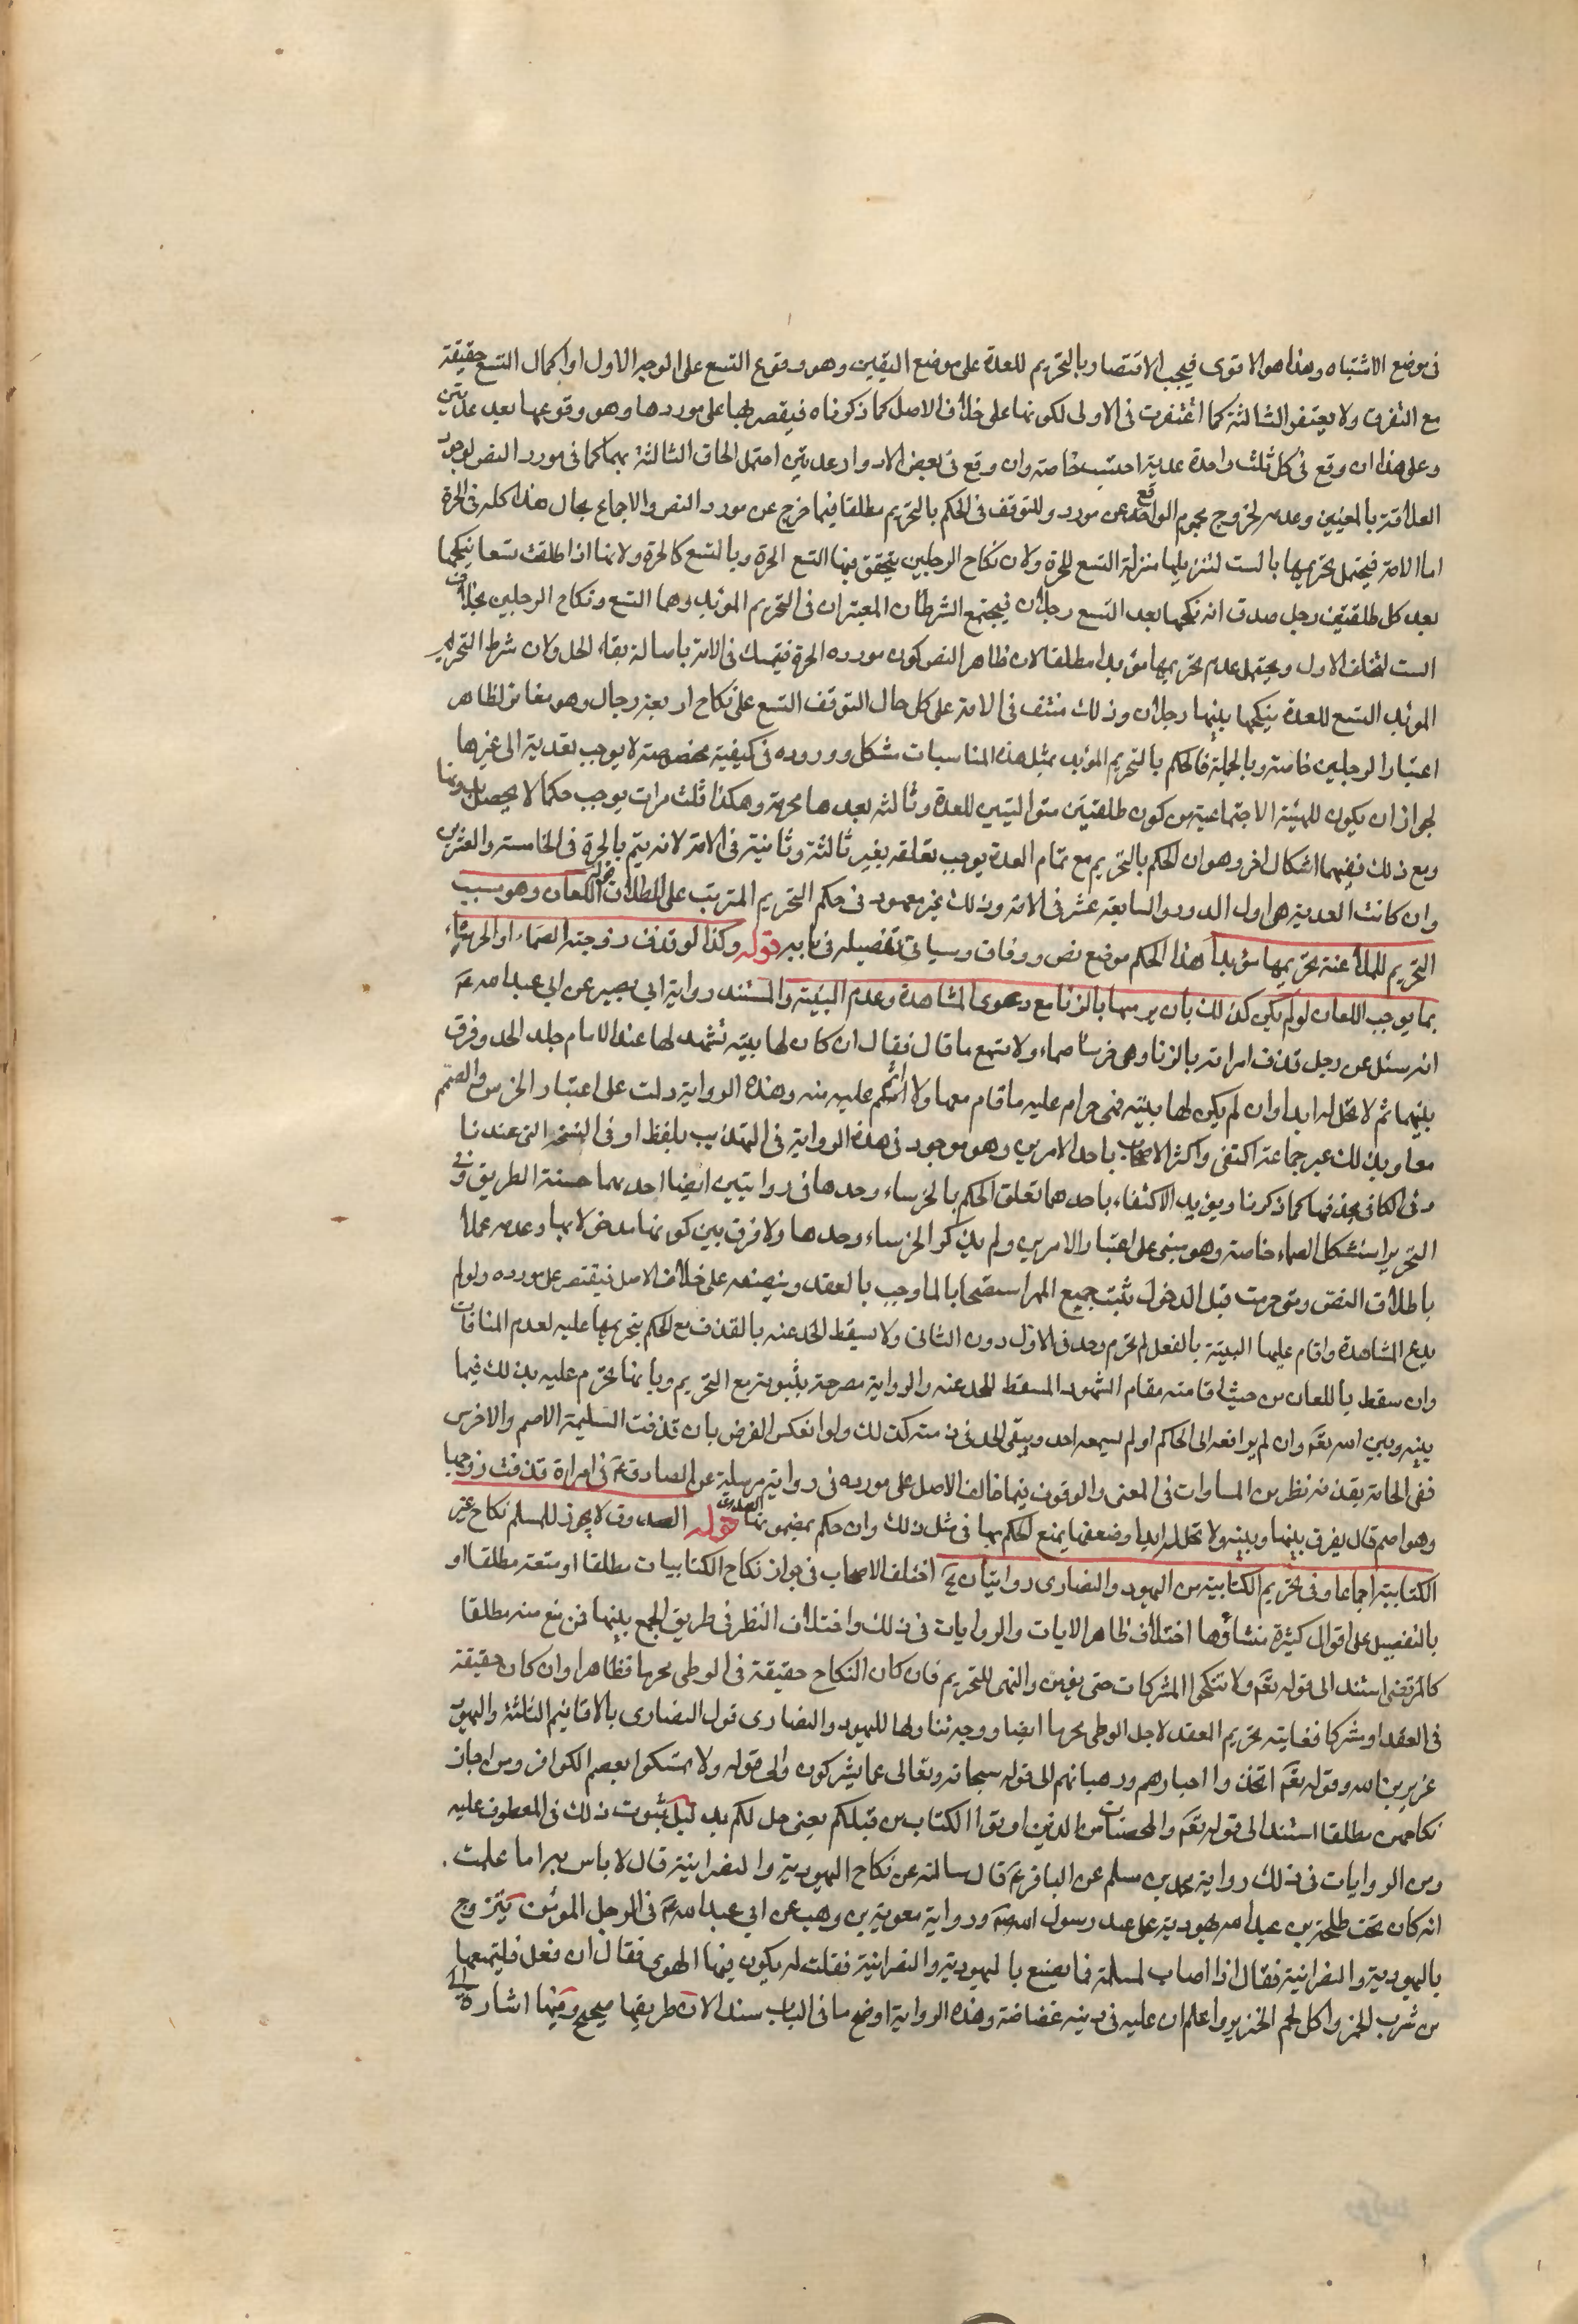 فى موضع الاشتباه وهذا هو الاقوى فيجب الاقتصار بالتحريم للعدة على موضع اليقين وهو وقوع التسع على الوجه الاول او اكمال التسع حقيقة
مع التفرق ولا يغتفر الثالثة كما اغتفرت فى الاولى لكونها على خلاف الاصل كما ذكرناه فيقصر بها على موردها وهو وقوعها بعد عديتين
وعلى هذا ان وقع فى كل ثلث واحدة عدية احتسب خاصة وان وقع فى بعض الادوار عديتين احتمل الحاق الثالثة بهما كما فى مورد النص لوجود
العلاقة بالمعنيين وعدمه لخروج مجموع الواقع عن مورده وللتوقف فى الحكم بالتحريم مطلقا فيما خرج عن مورد النص والاجماع مجال هذا كله فى الحرة
اما الامة فيحتمل تحريمها بالست لتنزيلها منزلة التسع للحرة ولان نكاح الرجلين يتحقق فيها التسع الحرة وبالتسع كالحرة ولانها اذا طلقت تسعا ينكحها
بعد كل طلقتين رجل صدق انه نكحها بعد التسع رجلان فيجتمع الشرطان المعتبران فى التحريم المؤبد وهما التسع ونكاح الرجلين بخلاف
الست لتخلف الاول ويحتمل عدم تحريمها مؤبدا مطلقا لان ظاهر النص كون مورده الحرة فيتمسك فى الامة باصالة بقاء الحل ولان شرط التحريم
المؤبد التسع للعدة ينكحها بينها رجلان وذلك منتف فى الامة على كل حال لتوقف التسع على نكاح اربعة رجال وهو مغاير لظاهر
اعتبار الرجلين خاصة وبالجملة فالحكم بالتحريم المؤبد بمثل هذه المناسبات مشكل ووروده فى كيفية مخصوصة لا يوجب تعديته الى غيرها
لجواز ان يكون للهيئة الاجتماعية من كون طلقتين متواليتين للعدة وثالثه بعدها محرمة وهكذا ثلث مرات يوجب حكما لا يحصل بدونها
ومع ذلك ففيهما اشكال اخر وهو ان الحكم بالتحريم مع تمام العدة يوجب تعلقه بغير ثالثة وثانية فى الامة لانه يتم بالحرة فى الخامسة والعشرين
وان كانت العدية هى اول الدور والسابعة عشر فى الامة وذلك غير معهود فى حكم التحريم المترتب على الطلاق قوله اللعان وهو سبب
التحريم للملاعنة تحريمها مؤبدا هذا الحكم موضع نص ووفاق وسياتى تفصيله فى بابه قوله وكذا لو قذف زوجته الصماء او الخرساء
بما يوجب اللعان لو لم يكن كذلك بان يرميها بالزنا مع دعوى المشاهدة وعدم البينة والمستند رواية ابى بصير عن ابى عبد الله ع
انه سئل عن رجل قذف امراته بالزنا وهى خرساء صماء ولا تسمع ما قال فقال ان كان لها بينة تشهد لها عند الامام جلد الحد وفرق
بينهما ثم لا تحل له ابدا وان لم يكن لها بينة فهى حرام عليه ما قام معها ولا اثم عليها منه وهذه الرواية دلت على اعتبار الخرس والصمم
معا وبذلك عبر جماعة واكتفى اكثر الاصحاب باحد الامرين وهو موجود فى هذه الرواية فى التهذيب بلفظ او فى النسخة التى عندنا
وفى الكافى بحذفها كما ذكرنا ويؤيد الاكتفاء باحدهما تعلق الحكم بالخرساء وحدها فى روايتين ايضا احدهما حسنة الطريق وفى
التحرير استشكل الصماء خاصة وهو مبنى على اعتبار الامرين ولم يذكر الخرساء وحدها ولا فرق بين كونها مدخولا بها وعدمه عملا
باطلاق النص ومتى حرمت قبل الدخول ثبت جميع المهر استصحابا لما وجب بالعقد وتنصيفه على خلاف الاصل فيقتصر على مورده ولو لم
يدع المشاهدة واقام عليها البينة بالفعل لم تحرم وحد فى الاول دون الثانى ولا يسقط الحد عنه بالقذف مع الحكم بتحريمها عليه لعدم المنافات
وان سقط باللعان من حيث اقامته مقام الشهود المسقط للحد عنه والرواية مصرحة بثبوته مع التحريم وبانها تحرم عليه بذلك فيما
بينه وبين الله تع وان لم يرافعه الى الحاكم او لم يسمعه احد ويبقى الحد فى ذمته كذلك ولو انعكس الفرض بان قذفت السليمة الاصم والاخرس
ففى الحاقه بقذفه نظر من المساوات فى المعنى والوقوف فيما خالف الاصل على مورده فى رواية مرسلة عن الصادق ع فى امراة قذفت زوجها
وهو اصم قال يفرق بينها وبينه ولا تحل له ابدا وضعفها يمنع الحكم بها فى مثل ذلك وان حكم بمضمونها الصدوق قوله لا يجوز للمسلم نكاح غير
الكتابية اجماعا وفى تحريم الكتابية من اليهود والنصارى روايتان الخ اختلف الاصحاب فى جواز نكاح الكتابيات مطلقا او متعة مطلقا او
بالتفصيل على اقوال كثيرة منشاؤها اختلاف ظاهر الايات والروايات فى ذلك واختلاف النظر فى طريق الجمع بينها فمن منع منه مطلقا
كالمرتضى استند الى قوله تع ولا تنكحوا المشركات حتى يؤمن والنهى للتحريم فان كان النكاح حقيقة فى الوطى محرما فظاهر وان كان حقيقة
فى العقد او مشتركا فغايته تحريم العقد لاجل الوطى محرما ايضا ووجه تناولها لليهود والنصارى قول النصارى بالاقانيم الثلثة واليهود
عزير بن الله وقوله تع اتخذوا احبارهم ورهبانهم الى قوله سبحانه وتعالى عما يشركون والى قوله ولا تمسكوا بعصم الكوافر ومن اجاز
نكاحهن مطلقا استند الى قوله تع والمحصنات من الذين اوتوا الكتاب من قبلكم يعنى حل لكم بدليل ثبوت ذلك فى المعطوف عليه
ومن الروايات فى ذلك رواية محمد بن مسلم عن الباقر ع قال سالته عن نكاح اليهودية والنصرانية قال لا باس به اما علمت
انه كان تحت طلحة بن عبد الله يهودية على عهد رسول الله ص ورواية معوية بن وهب عن ابى عبد الله ع فى الرجل المؤمن يتزوج
باليهودية والنصرانية فقال اذا اصاب المسلمة فما يصنع باليهودية والنصرانية فقلت له يكون فيها الهوى فقال ان فعل فليمنعها
من شرب الخمر واكل لحم الخنزير واعلم ان عليه فى دينه غضاضة وهذه الرواية اوضح ما فى الباب سندا لان طريقها صحيح وفيها اشارة الى